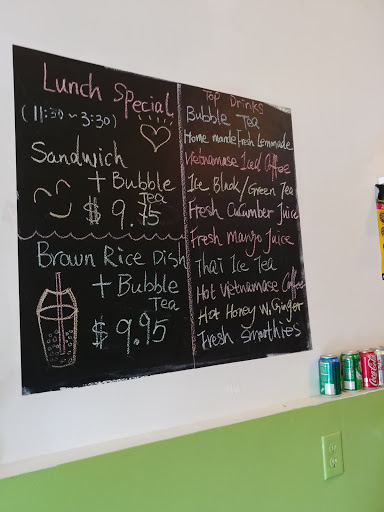 Lunch Special
(11:30 ~ 3:30)
Sandwich
+ Bubble
Tea
$ 9.75
Brown Rice Dish
+ Bubble
Tea
$ 9.95
Top Drinks
Bubble Tea
Home made Fresh Lemonade
Vietnamase Iced Coffee
Ice Black/Green Tea
Fresh Cucumber Juice
Fresh mango Juice
Thai Ice Tea
Hot Vietnamase Coffee
Hot Honey W. Ginger
Fresh Smoothies
Coca-Cola